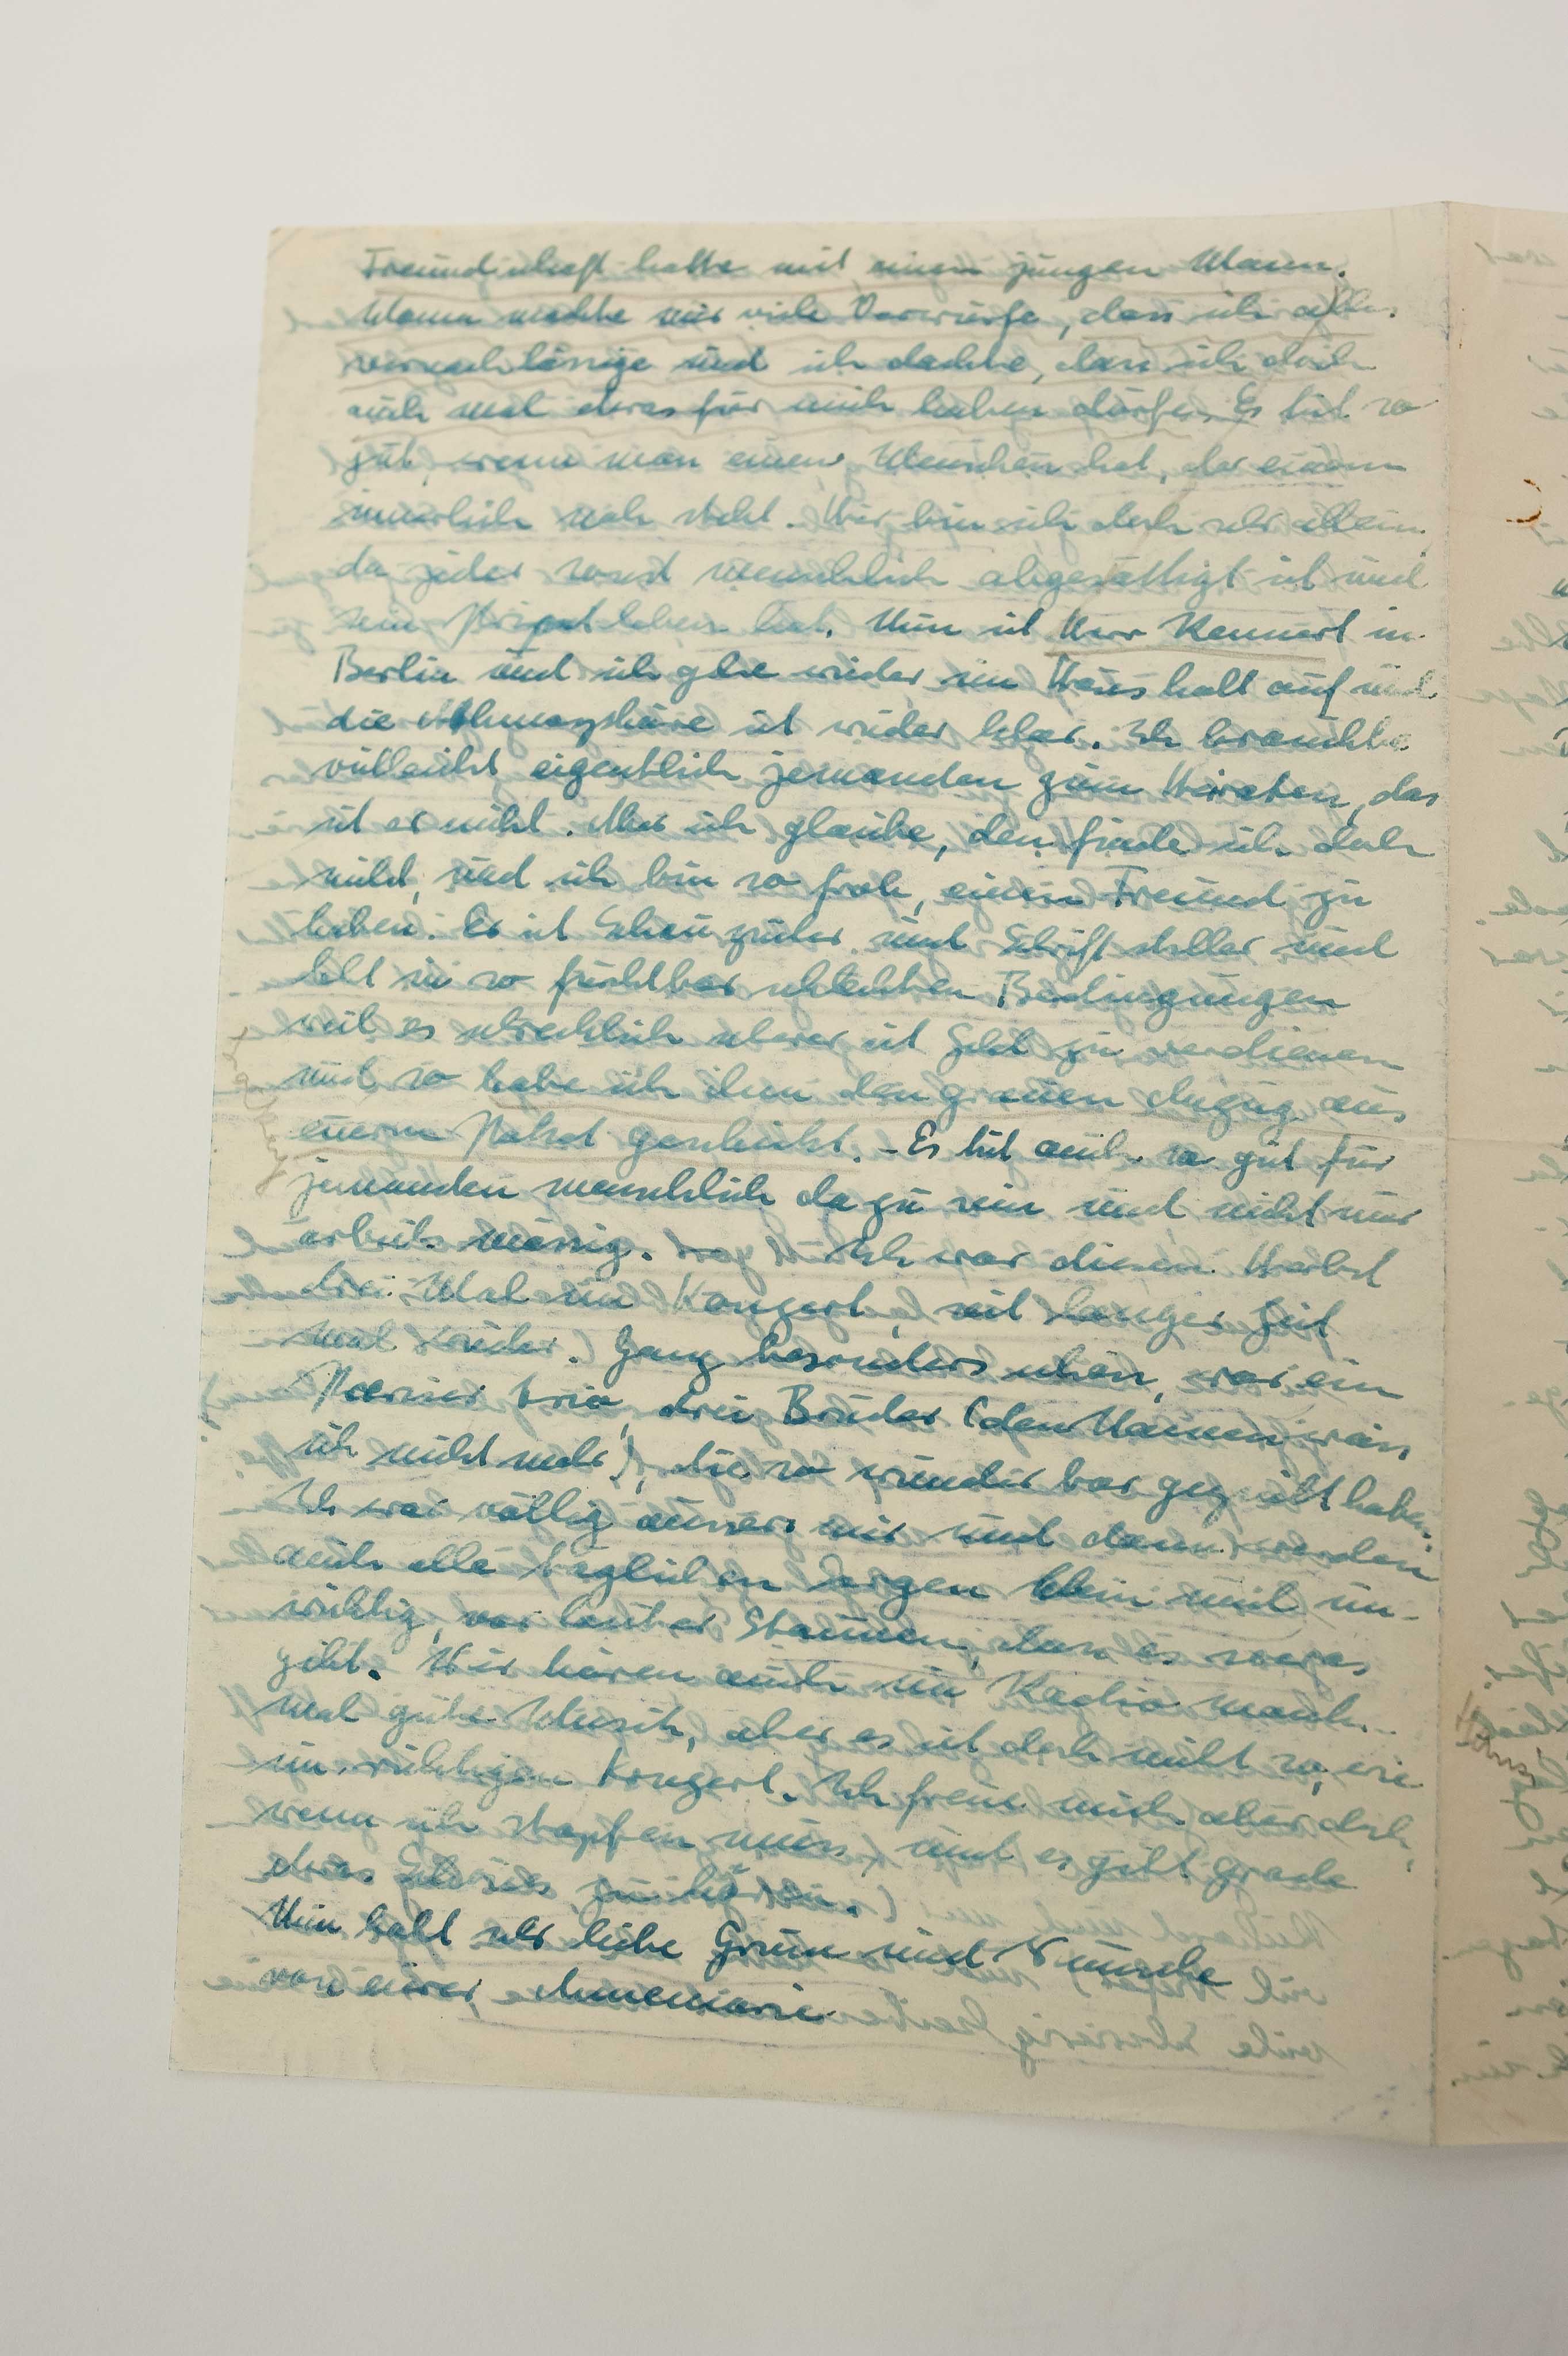 Freundschaft hatte mit einem jungen Mann.
Mama machte mir viele Vorwürfe, dass ich alles
vernachlässige und ich dachte, dass ich doch
auch mal etwas für mich haben dürfe. Es tut so
gut, wenn man einen Menschen hat, der einem
innerlich nah steht. Hier bin ich doch sehr allein,
da jeder sonst menschlich abgesättigt ist und
sein Privatleben hat. Nun ist Herr Rennert in
Berlin und ich gehe wieder im Haushalt auf und
die Athmosphäre ist wieder klar. Ich brauchte
vielleicht eigentlich jemanden zum Heiraten, das
ist er nicht. Aber ich glaube, den finde ich doch
nicht, und ich bin so froh, einen Freund zu
haben. Er ist Schauspieler und Schriftsteller und
lebt in so furchtbar schlechten Bedingungen
weil es schrecklich schwer ist Geld zu verdienen
und so habe ich ihm den grauen Anzug aus
eurem Paket geschickt. – Es tut auch so gut für
jemanden menschlich da zu sein und nicht nur
arbeitsmässig. Ich war diesen Herbst
drei Mal im Konzert, seit langer Zeit
mal wieder. Ganz besonders schön, war ein
trio, drei Brüder (den Namen weiss
ich nicht mehr), die so wunderbar gespielt haben.
Ich war völlig ausser mir und dann werden
auch alle täglichen Sorgen klein und un-
wichtig, vor lauter Staunen, dass es sowas
gibt. Wir hören auch im Radio manch-
mal gute Musik, aber es ist doch nicht so, wie
im richtigen Konzert. Ich freue mich aber doch,
wenn ich stopfen muss, und es gibt grade
etwas Schönes zu hören.
Nun habt sehr liebe Grüsse und Wünsche
von eurer Annemarie